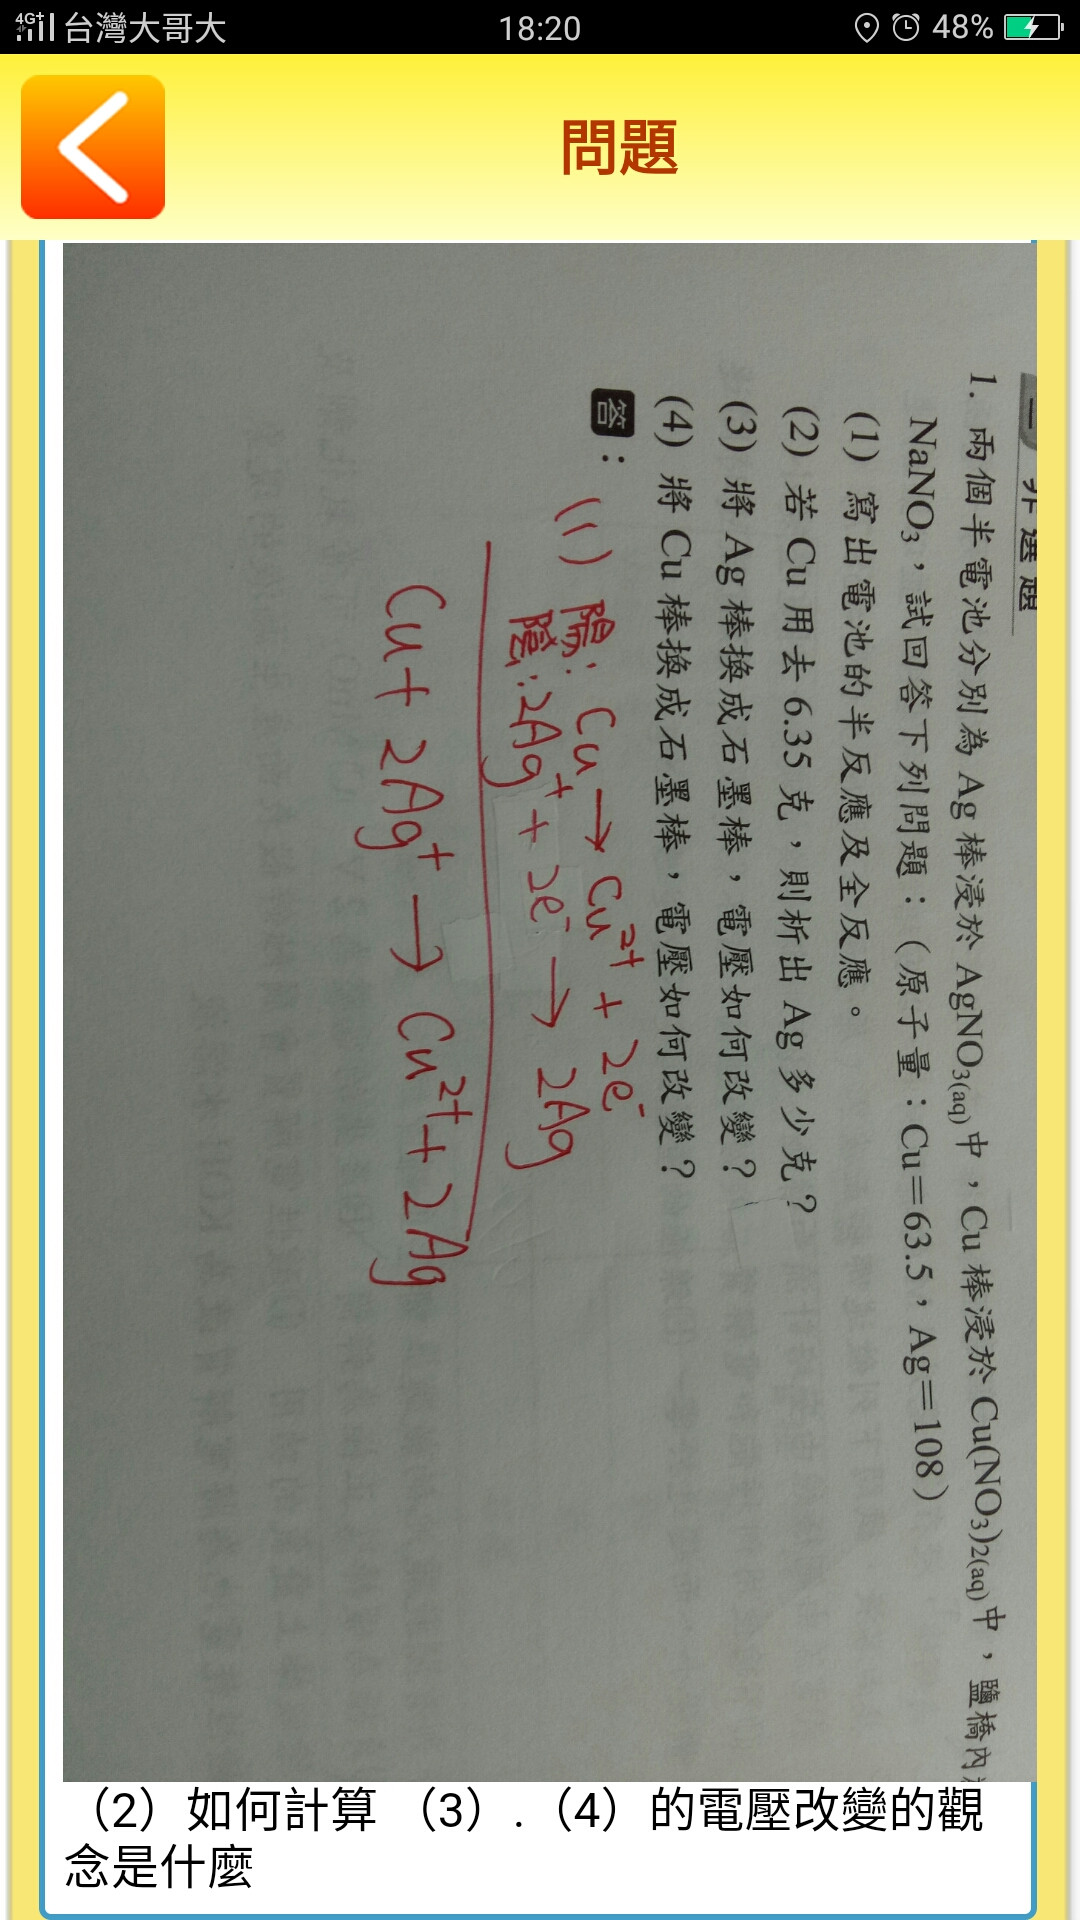 4G+ 台灣大哥大 18:20 48%
問題
二 非選題
1. 兩個半電池分別為 Ag 棒浸於 AgNO3(aq)中，Cu 棒浸於 Cu(NO3)2(aq)中，鹽橋內
NaNO3，試回答下列問題：（原子量：Cu＝63.5，Ag＝108）
(1) 寫出電池的半反應及全反應。
(2) 若 Cu 用去 6.35 克，則析出 Ag 多少克？
(3) 將 Ag 棒換成石墨棒，電壓如何改變？
(4) 將 Cu 棒換成石墨棒，電壓如何改變？
答：
(1) 陽: Cu → Cu²⁺ + 2e⁻
陰: 2Ag⁺ + 2e⁻ → 2Ag
Cu + 2Ag⁺ → Cu²⁺ + 2Ag
（2）如何計算 （3）.（4）的電壓改變的觀
念是什麼